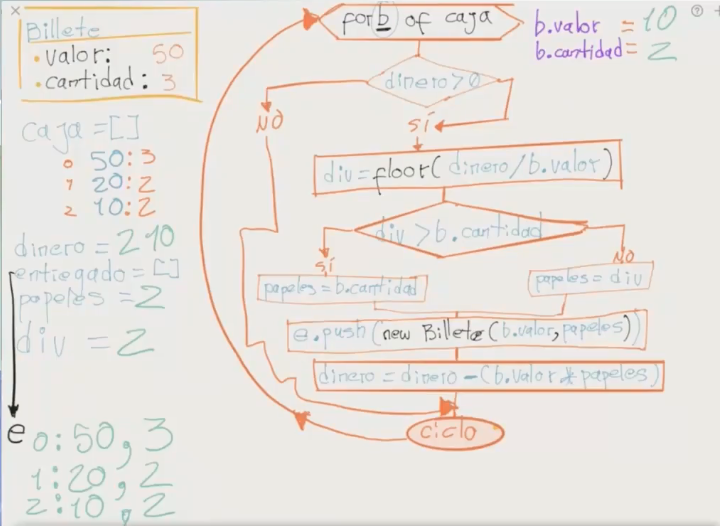 Billete
• valor: 50
• cantidad: 3
caja = []
0 50:3
1 20:2
2 10:2
dinero = 210
entregado = []
papeles = 2
div = 2
e 0:50, 3
1:20, 2
2:10, 2
for b of caja
b.valor = 10
b.cantidad = 2
dinero > 0
NO
SÍ
div = floor( dinero / b.valor)
div > b.cantidad
SÍ
NO
papeles = b.cantidad
papeles = div
e.push(new Billete (b.valor, papeles))
dinero = dinero - (b.valor * papeles)
ciclo